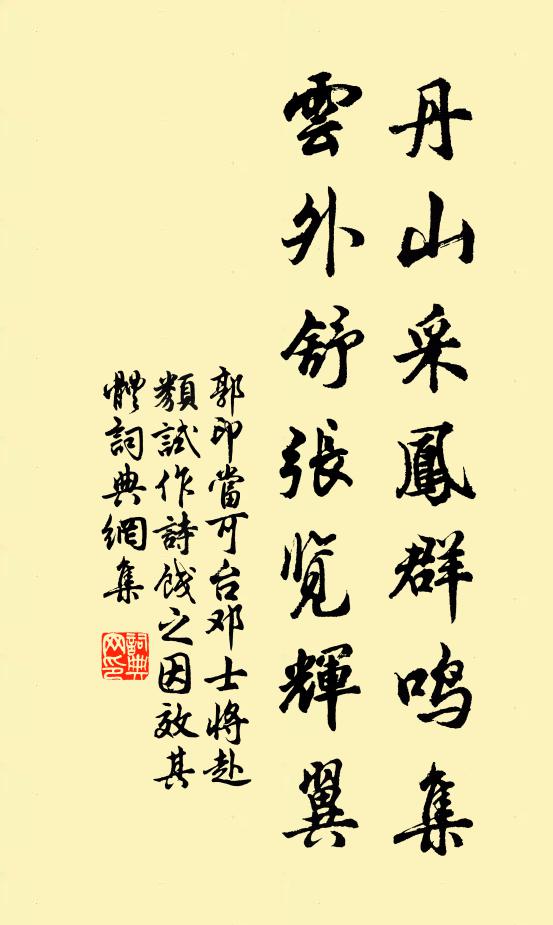 丹山采鳳群鳴集
雲外舒張览輝翼
郭印當可台邓士將赴
類試作詩餞之因效其
體詞典網集
詞典網